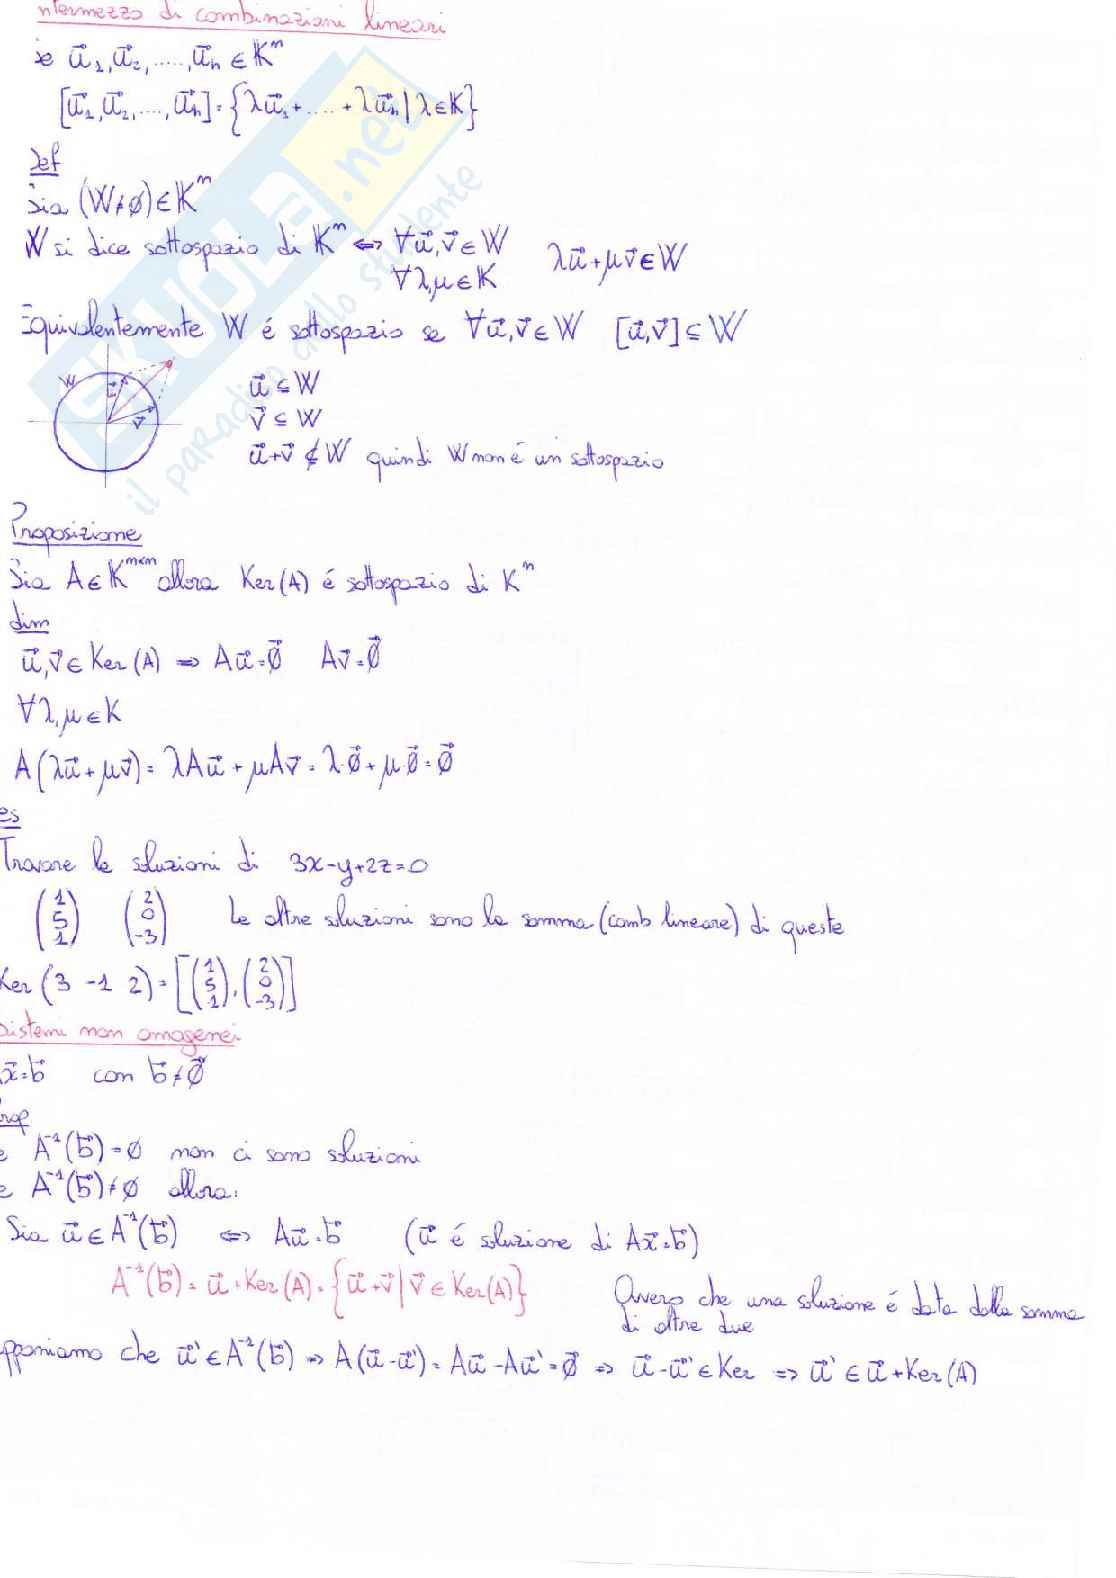 ntermezzo di combinazioni lineari
se u⃗₁, u⃗₂, ....., u⃗ₙ ∈ Kᵐ
[u⃗₁, u⃗₂, ..., u⃗ₙ] = {λu⃗₁ + .... + λu⃗ₙ | λ ∈ K}
Def
Sia (W ≠ ∅) ∈ Kᵐ
W si dice sottospazio di Kᵐ ⇔ ∀u⃗, v⃗ ∈ W λu⃗ + μv⃗ ∈ W
∀λ, μ ∈ K
Equivalentemente W é sottospazio se ∀u⃗, v⃗ ∈ W [u⃗, v⃗] ⊆ W
W u⃗ v⃗
u⃗ ⊆ W
v⃗ ⊆ W
u⃗ + v⃗ ∉ W quindi W non é un sottospazio
Proposizione
Sia A ∈ Kᵐˣⁿ allora Ker(A) é sottospazio di Kⁿ
dim
u⃗, v⃗ ∈ Ker(A) ⇒ Au⃗ = ∅⃗ Av⃗ = ∅⃗
∀λ, μ ∈ K
A(λu⃗ + μv⃗) = λAu⃗ + μAv⃗ = λ·∅⃗ + μ·∅⃗ = ∅⃗
es
Trovare le soluzioni di 3x-y+2z=0
(1 5 1) (2 0 -3) Le altre soluzioni sono la somma (comb lineare) di queste
Ker (3 -1 2) = [(1 5 1), (2 0 -3)]
Sistemi non omogenei
x⃗ = b⃗ con b⃗ ≠ ∅⃗
Prop
e A⁻¹(b⃗) = ∅ non ci sono soluzioni
e A⁻¹(b⃗) ≠ ∅ allora:
Sia u⃗ ∈ A⁻¹(b⃗) ⇔ Au⃗ = b⃗ (u⃗ é soluzione di Ax⃗ = b⃗)
A⁻¹(b⃗) = u⃗ + Ker(A) = {u⃗ + v⃗ | v⃗ ∈ Ker(A)}
Ovvero che una soluzione é data dalla somma
di altre due
pponiamo che u⃗' ∈ A⁻¹(b⃗) ⇒ A(u⃗ - u⃗') = Au⃗ - Au⃗' = ∅⃗ ⇒ u⃗ - u⃗' ∈ Ker ⇒ u⃗' ∈ u⃗ + Ker(A)
SKUOLA.net
il paradiso dello studente